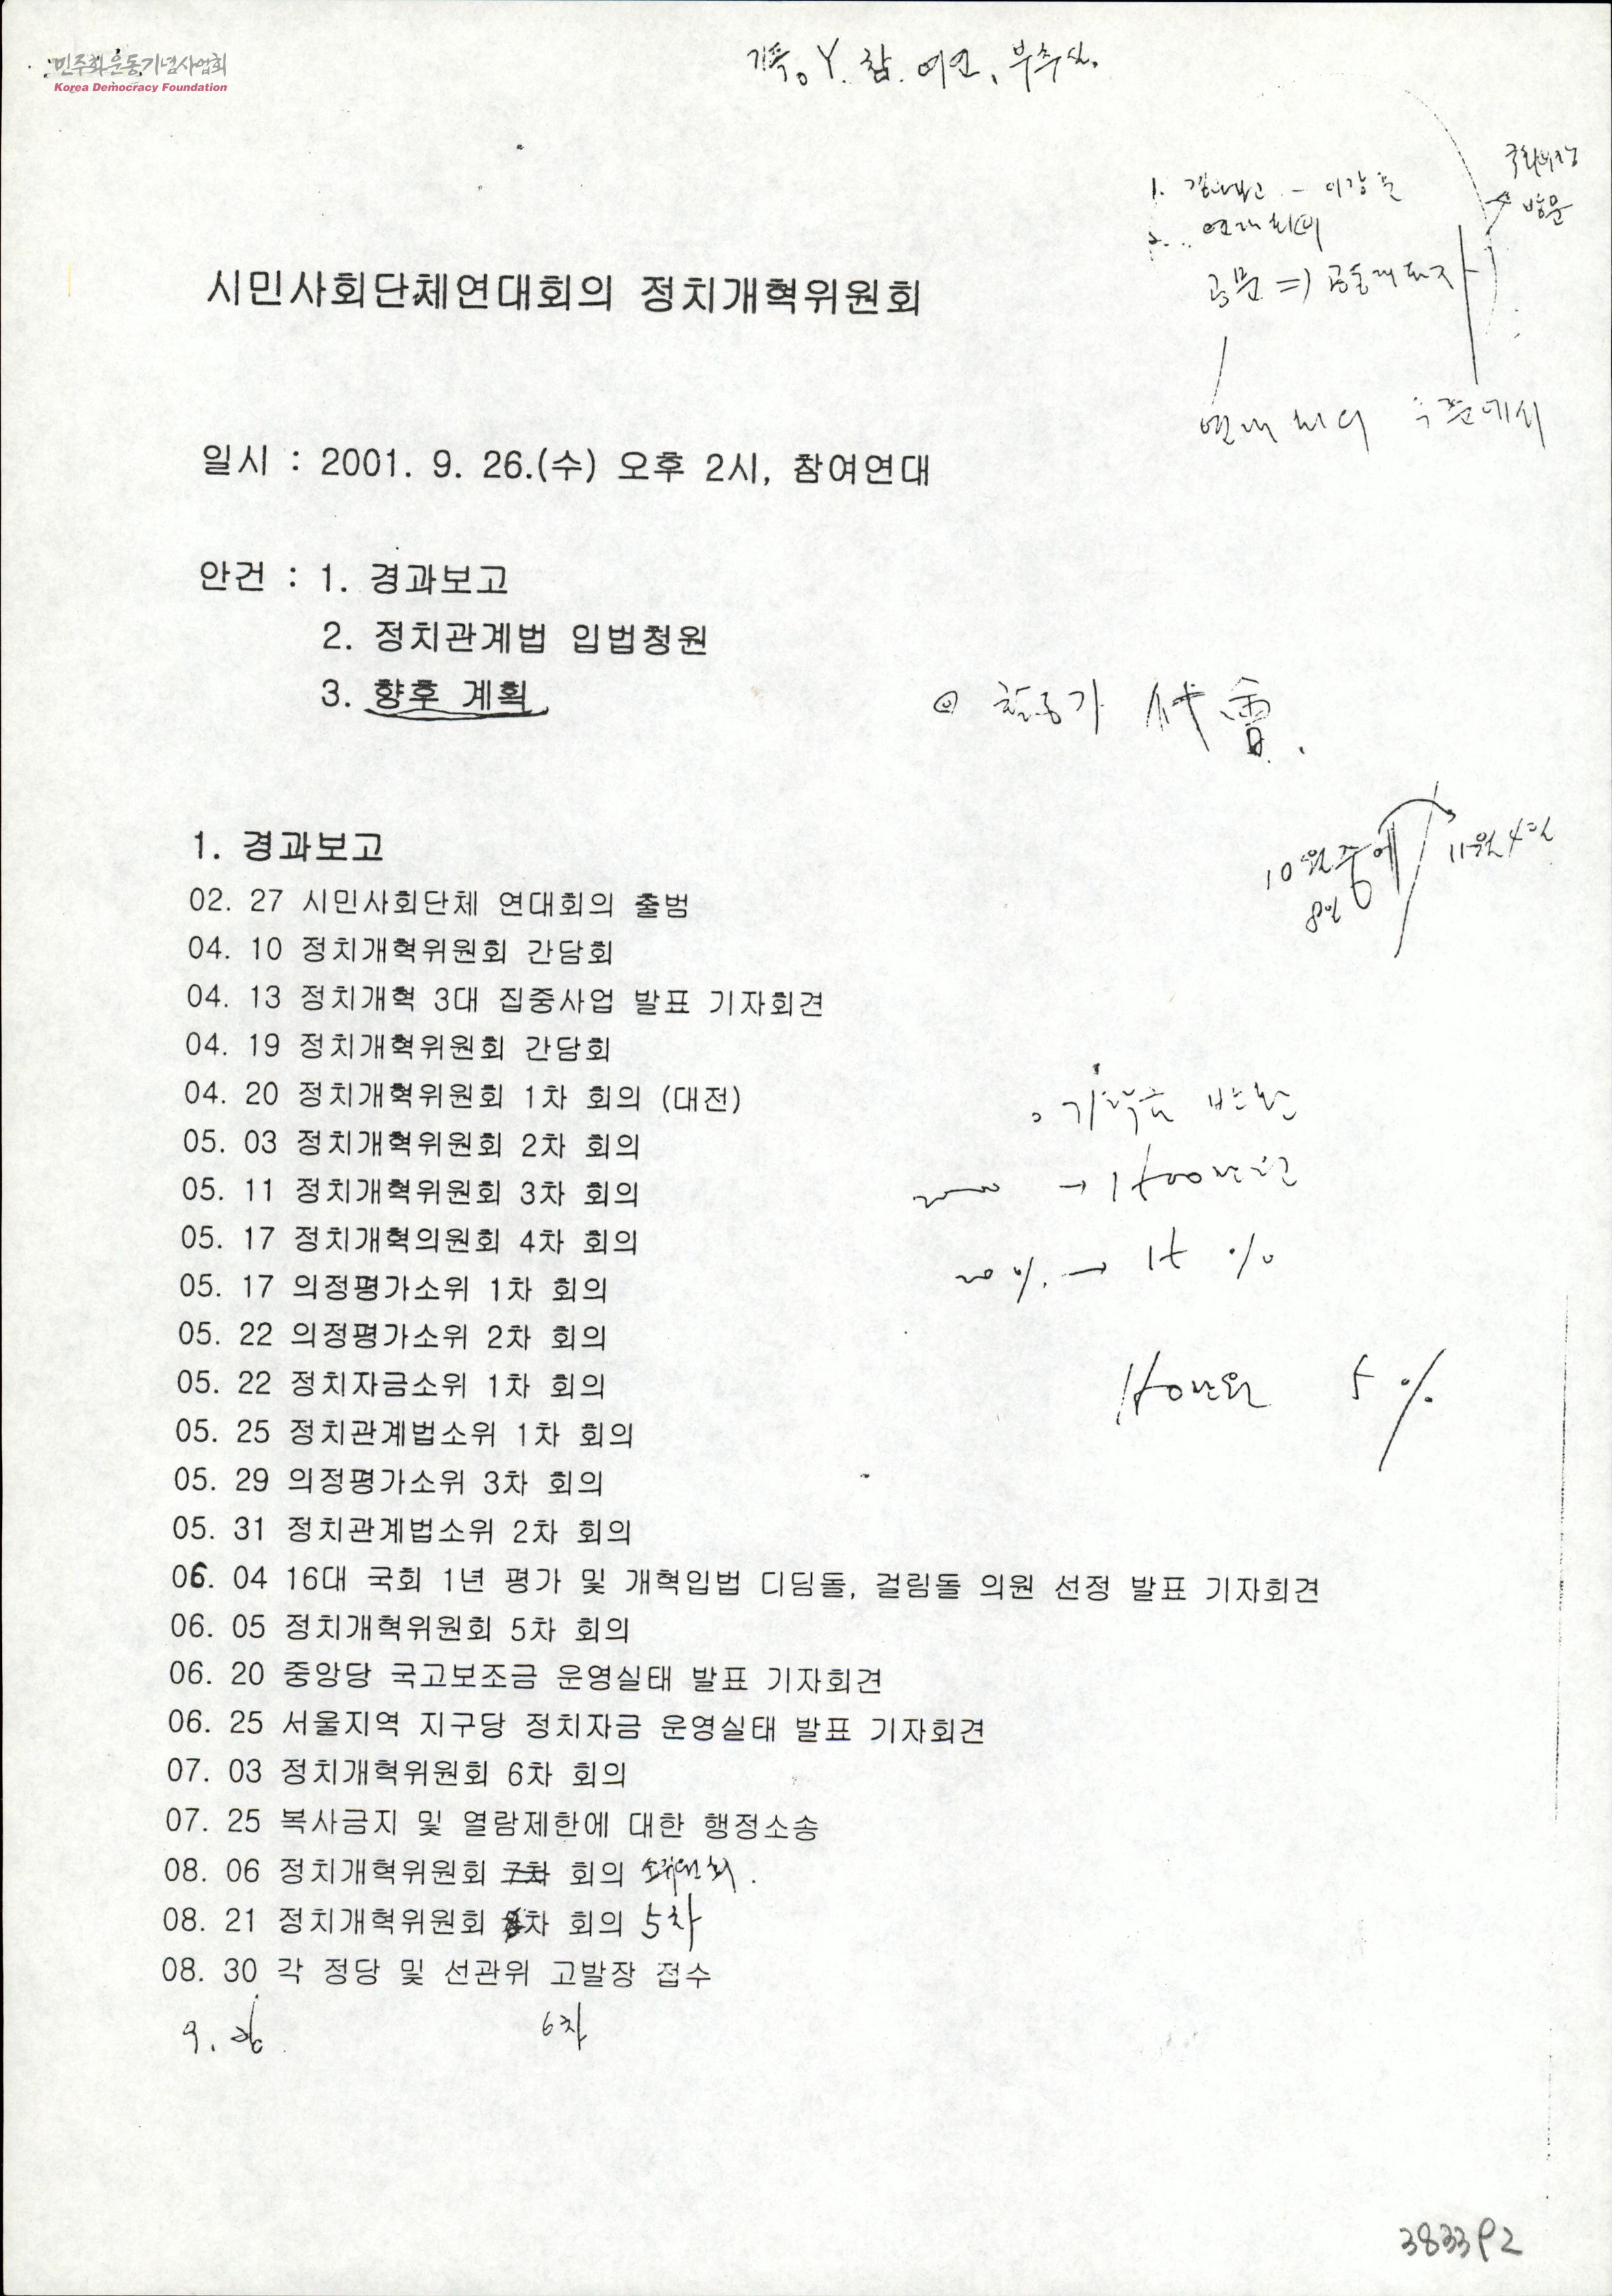 민주화운동기념사업회
Korea Democracy Foundation
기륜。Y. 참. 여연, 부추실.
국회의장
방문
1. 경과보고 - 이강준
2. 연대회의
공문 => 공동대표자
연대회의
시민사회단체연대회의 정치개혁위원회
일시 : 2001. 9. 26.(수) 오후 2시, 참여연대
안건 : 1. 경과보고
2. 정치관계법 입법청원
3. 향후 계획
◎ 활동가 代會.
10월중에 11월 4일
8일
1. 경과보고
02. 27 시민사회단체 연대회의 출범
04. 10 정치개혁위원회 간담회
04. 13 정치개혁 3대 집중사업 발표 기자회견
04. 19 정치개혁위원회 간담회
04. 20 정치개혁위원회 1차 회의 (대전)
05. 03 정치개혁위원회 2차 회의
기탁금 반환
05. 11 정치개혁위원회 3차 회의
2000 → 1500만원
05. 17 정치개혁의원회 4차 회의
20 %. → 15 %
05. 17 의정평가소위 1차 회의
05. 22 의정평가소위 2차 회의
05. 22 정치자금소위 1차 회의
150만원 5 %
05. 25 정치관계법소위 1차 회의
05. 29 의정평가소위 3차 회의
05. 31 정치관계법소위 2차 회의
06. 04 16대 국회 1년 평가 및 개혁입법 디딤돌, 걸림돌 의원 선정 발표 기자회견
06. 05 정치개혁위원회 5차 회의
06. 20 중앙당 국고보조금 운영실태 발표 기자회견
06. 25 서울지역 지구당 정치자금 운영실태 발표 기자회견
07. 03 정치개혁위원회 6차 회의
07. 25 복사금지 및 열람제한에 대한 행정소송
08. 06 정치개혁위원회 7차 회의 소위원회.
08. 21 정치개혁위원회 8차 회의 5차
08. 30 각 정당 및 선관위 고발장 접수
9. 26 6차
383392